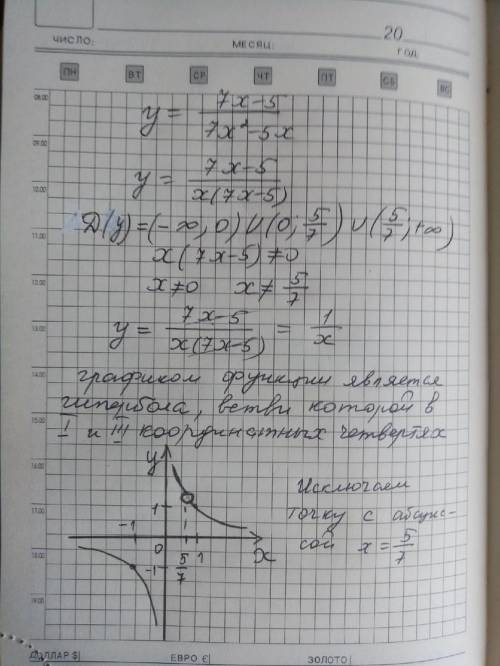 20
ЧИСЛО: МЕСЯЦ: ГОД
ПН ВТ СР ЧТ ПТ СБ ВС
08.00
09.00
10.00
11.00
12.00
13.00
14.00
15.00
16.00
17.00
18.00
19.00
y = (7x-5)/(7x²-5x)
y = (7x-5)/(x(7x-5))
D(y)=(-∞, 0) U (0; 5/7) U (5/7; +∞)
x(7x-5)≠0
x≠0 x≠ 5/7
y = (7x-5)/(x(7x-5)) = 1/x
графиком функции является
гипербола, ветви которой в
I и III координатных четвертях
y
1
-1
0
5/7
1
x
-1
Исключаем
точку с абсцис-
сой x = 5/7
ДОЛЛАР $| ЕВРО €| ЗОЛОТО|